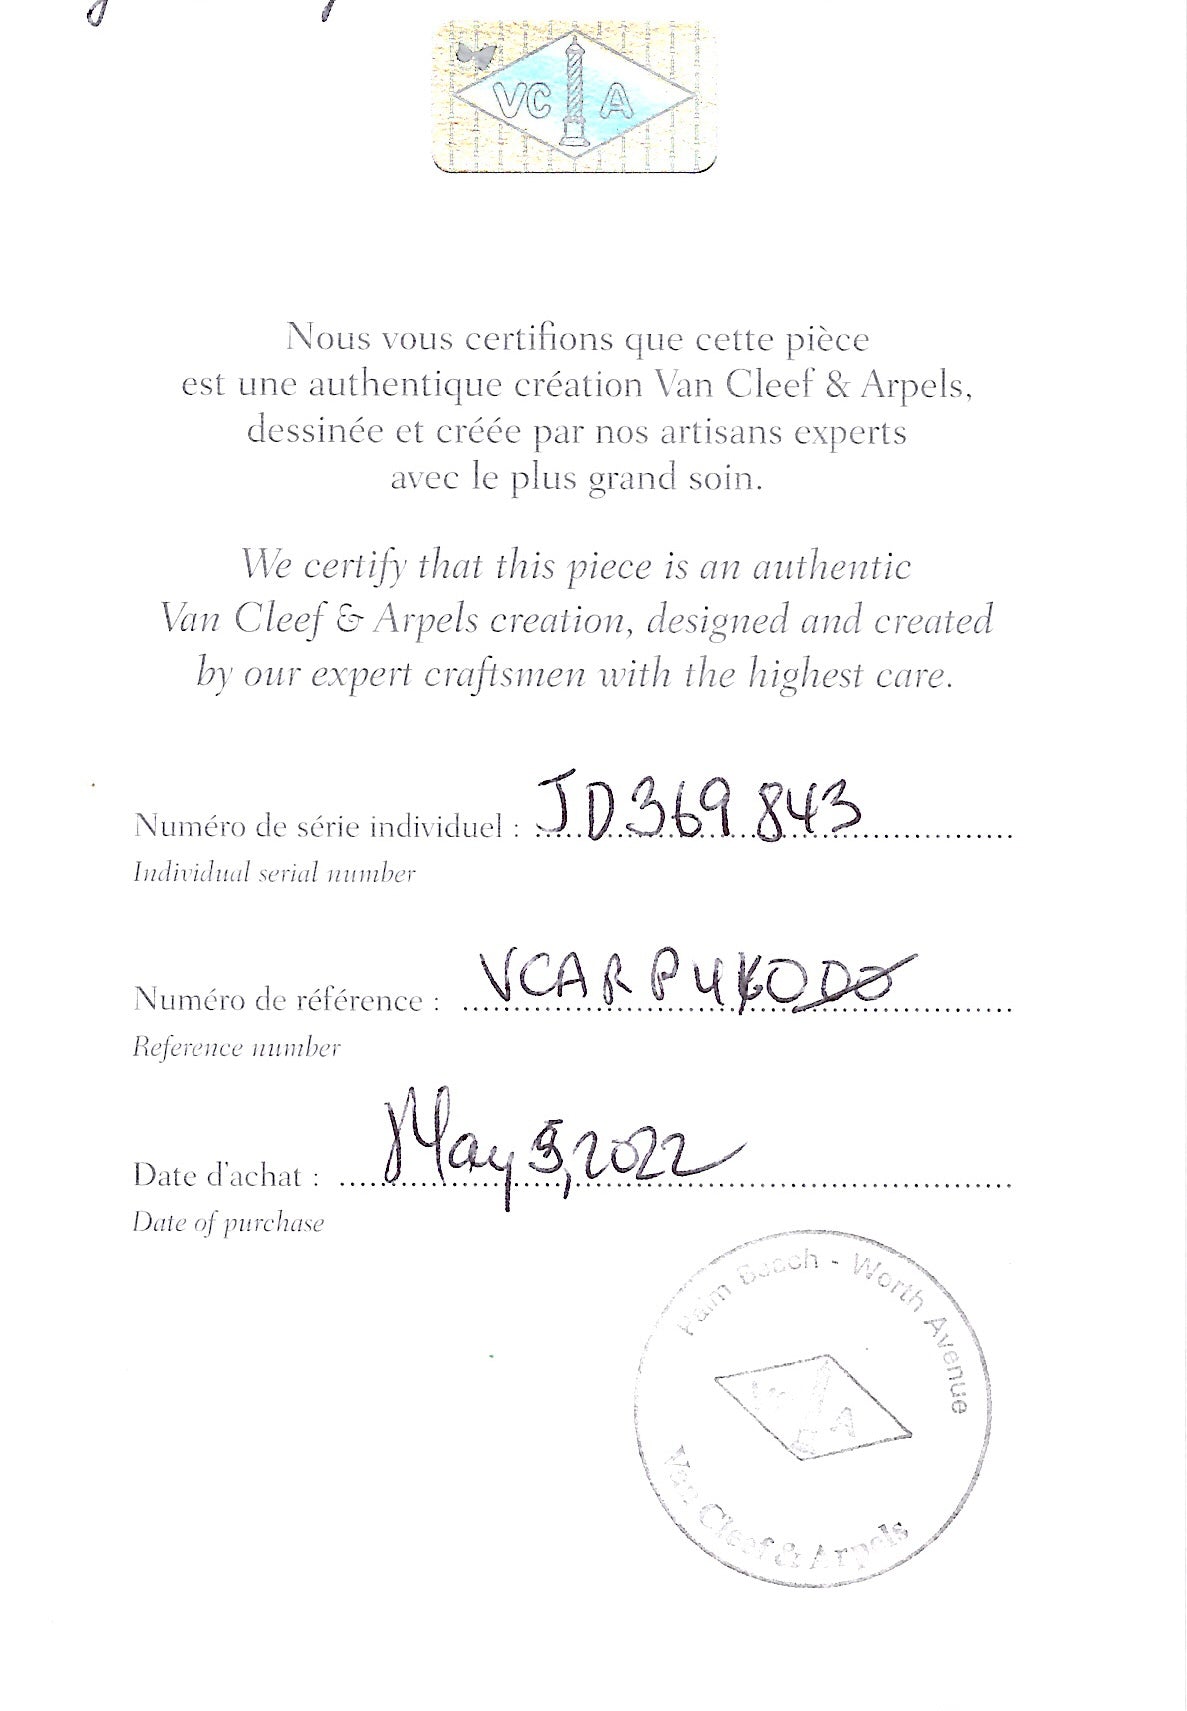 VC A
Nous vous certifions que cette pièce
est une authentique création Van Cleef & Arpels,
dessinée et créée par nos artisans experts
avec le plus grand soin.
We certify that this piece is an authentic
Van Cleef & Arpels creation, designed and created
by our expert craftsmen with the highest care.
Numéro de série individuel : JD369843
Individual serial number
Numéro de référence :
Reference number
Date d'achat : May 5, 2022
Date of purchase
Palm Beach - Worth Avenue
VC A
Van Cleef & Arpels